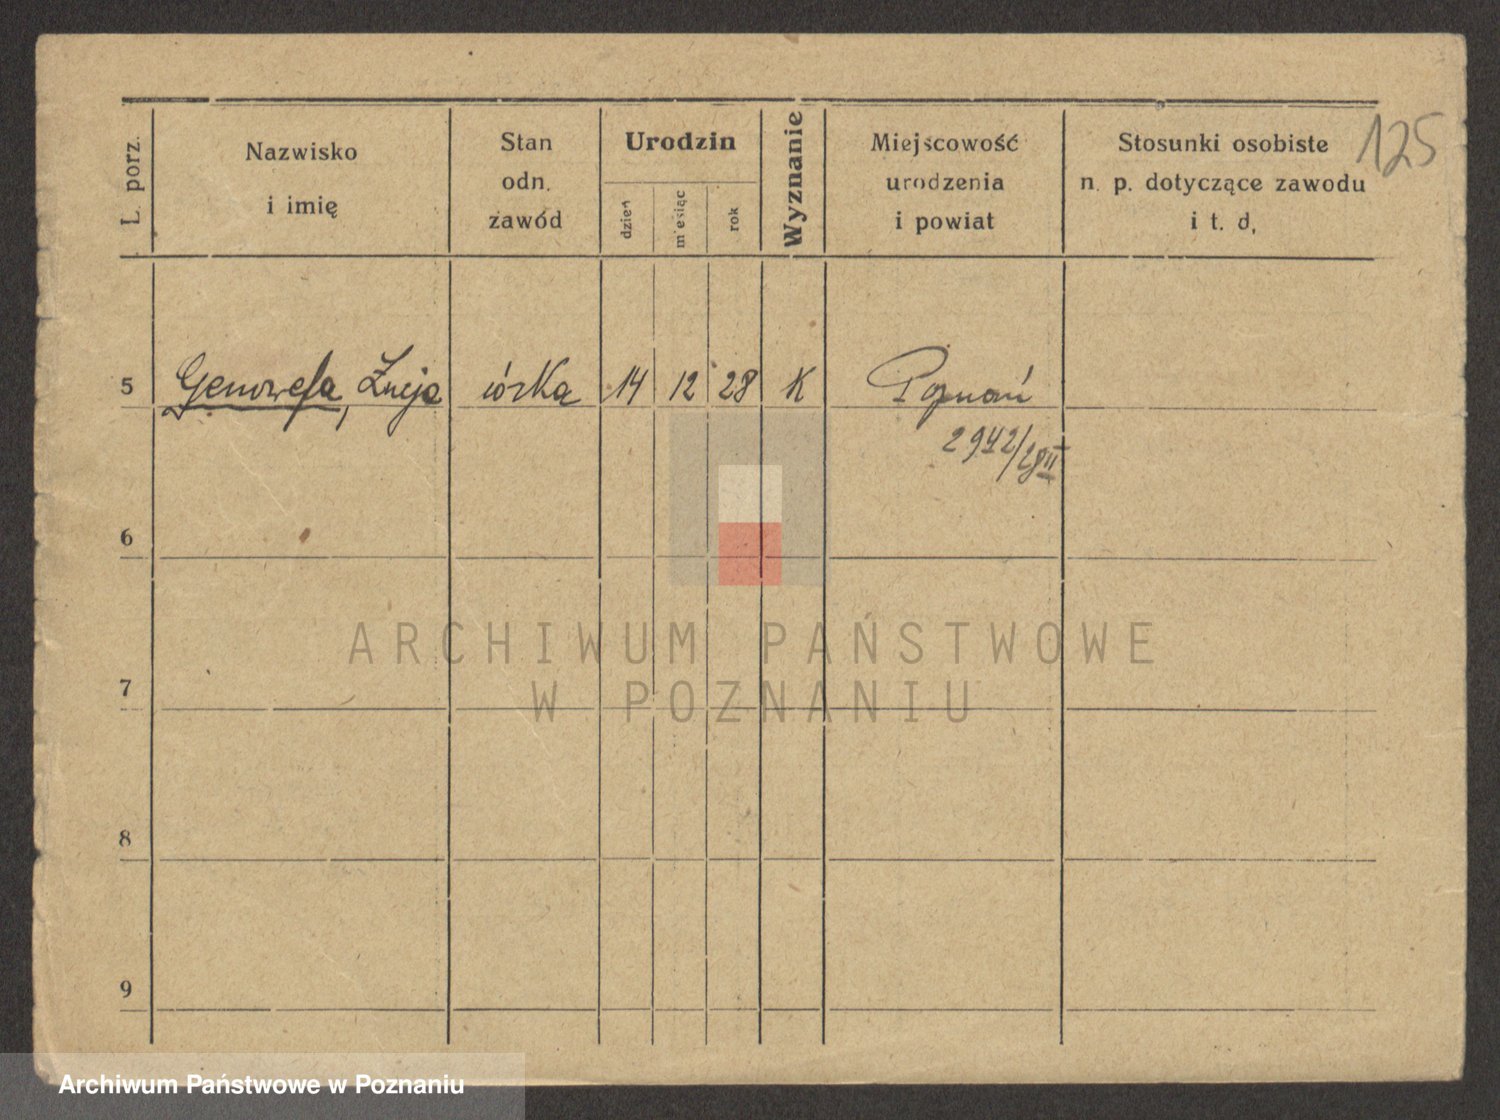 125
L. porz.
Nazwisko
i imię
Stan
odn.
zawód
Urodzin
dzień
miesiąc
rok
Wyznanie
Miejscowość
urodzenia
i powiat
Stosunki osobiste
n. p. dotyczące zawodu
i t. d.
5 Genowefa, Łucja córka 14 12 28 K Poznań
2942/28 III
6
7
8
9
ARCHIWUM PAŃSTWOWE
W POZNANIU
Archiwum Państwowe w Poznaniu